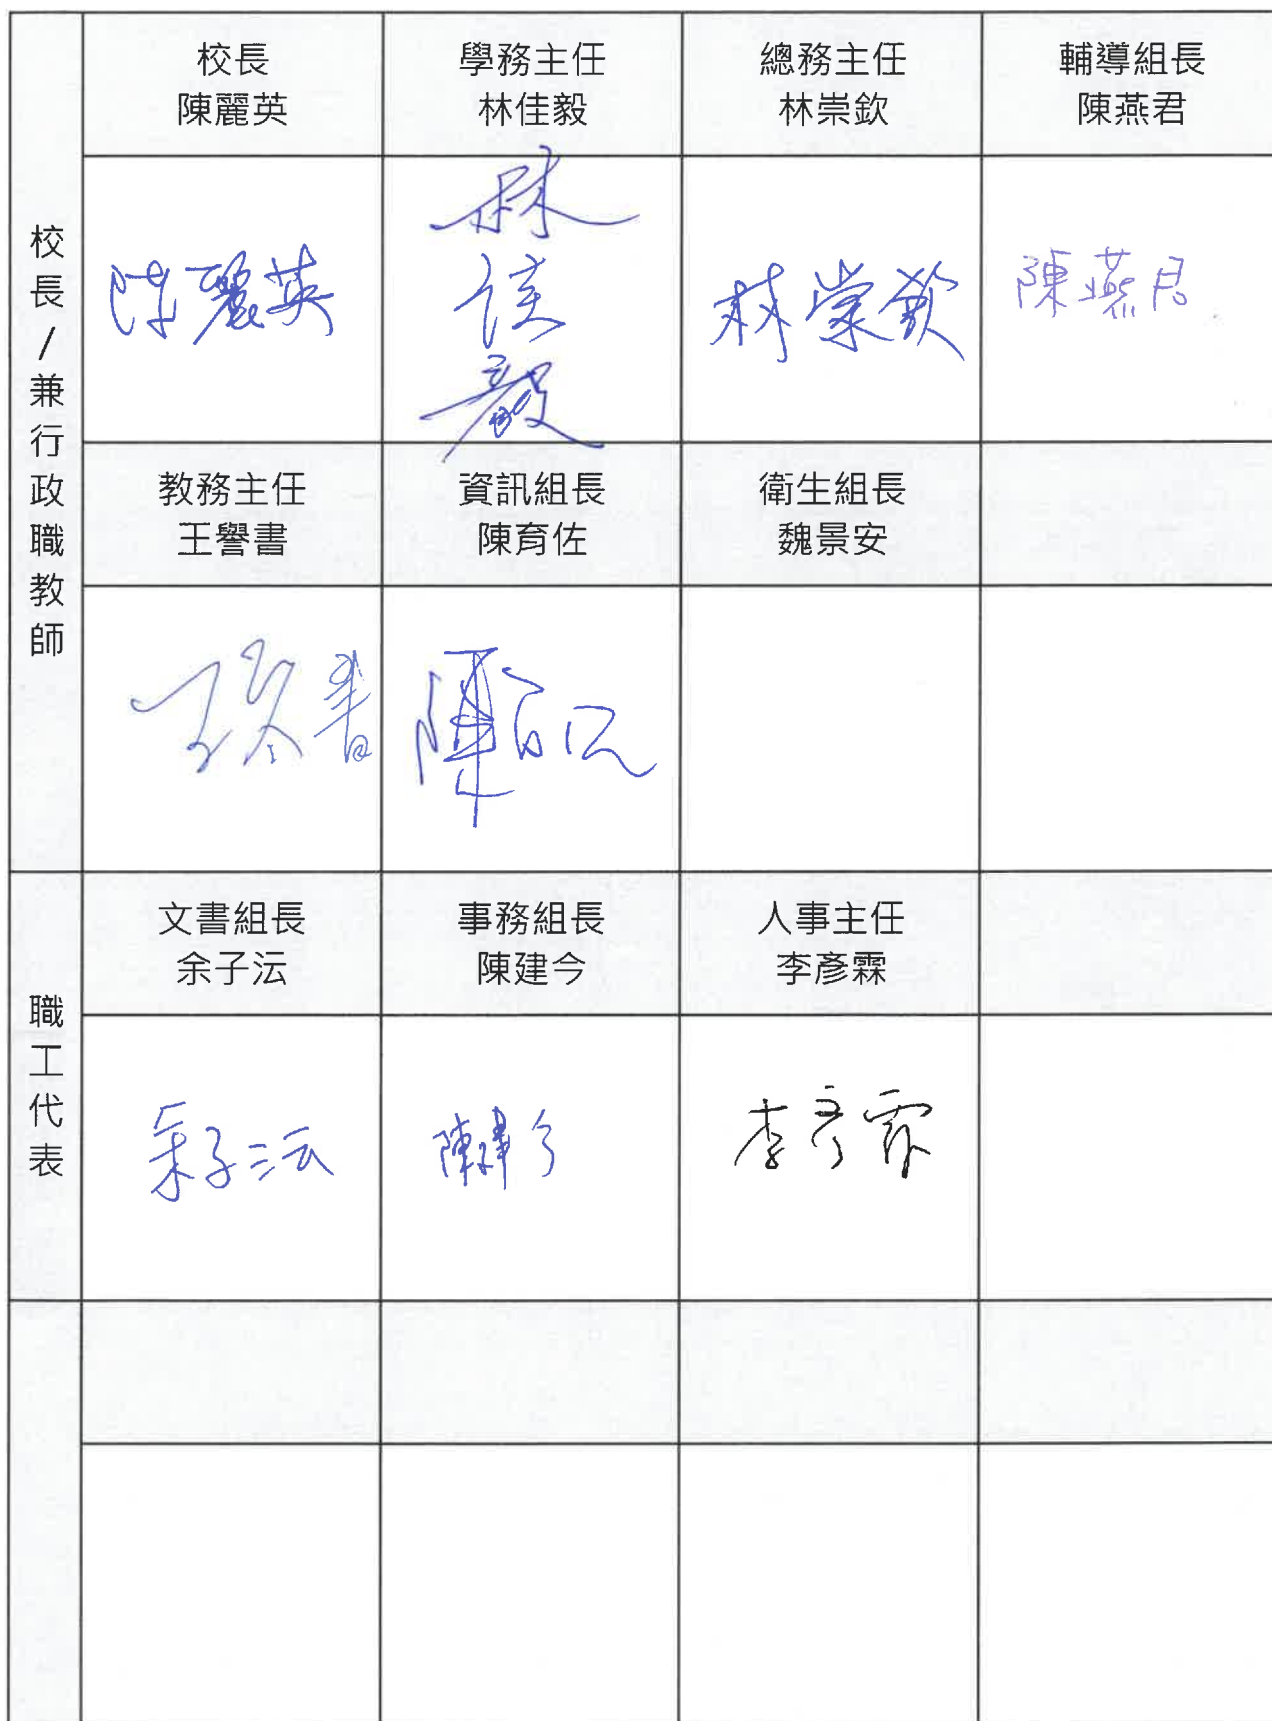 校長/兼行政職教師
校長
陳麗英
學務主任
林佳毅
總務主任
林崇欽
輔導組長
陳燕君
陳麗英
林佳毅
林崇欽
陳燕君
教務主任
王譽書
資訊組長
陳育佐
衛生組長
魏景安
王譽書
陳育佐
職工代表
文書組長
余子沄
事務組長
陳建今
人事主任
李彥霖
余子沄
陳建今
李彥霖